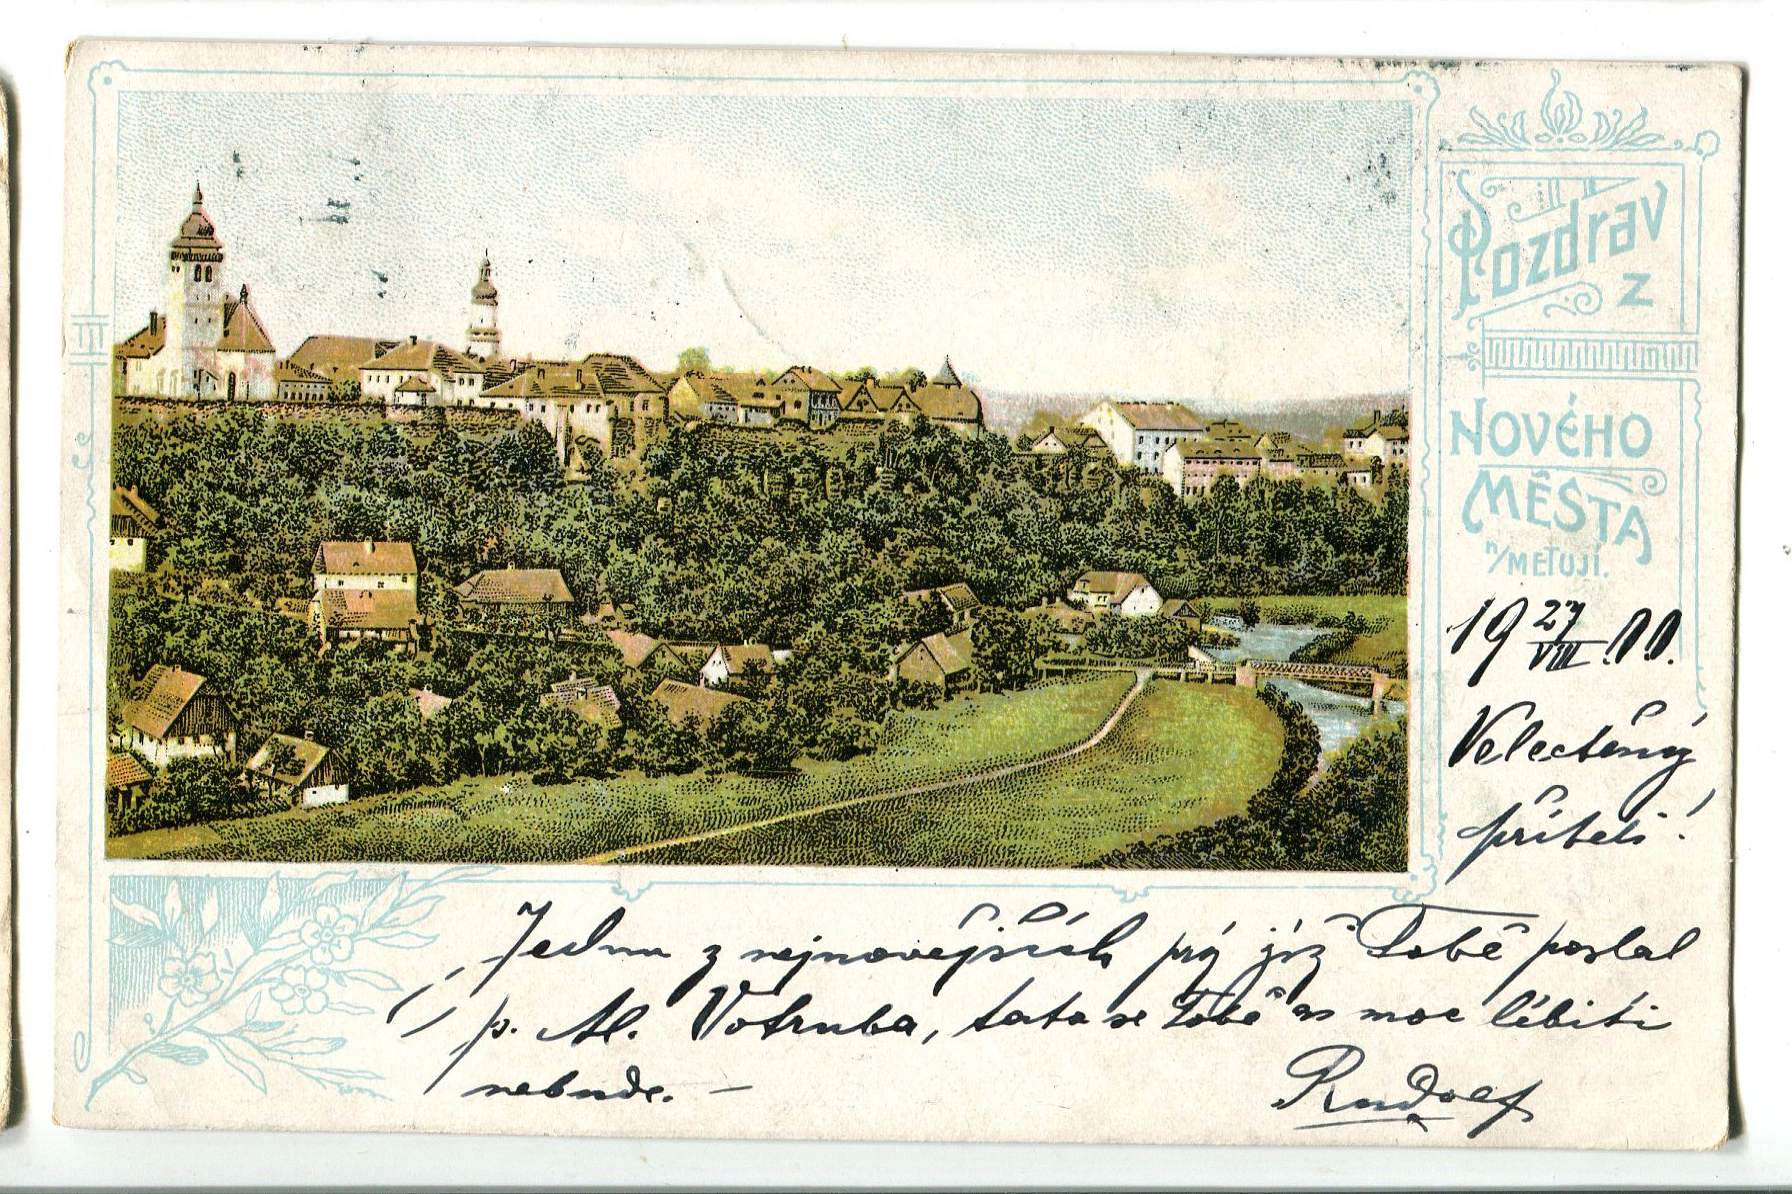 Pozdrav
z
NOVÉHO
MĚSTA
n/METUJÍ.
19 27/VIII. 00.
Velectěný
příteli!
Jednu z nejnovějších prý již Tobě poslal
p. Al. Votruba, tato se Tobě as moc líbiti
nebude. —
Rudolf